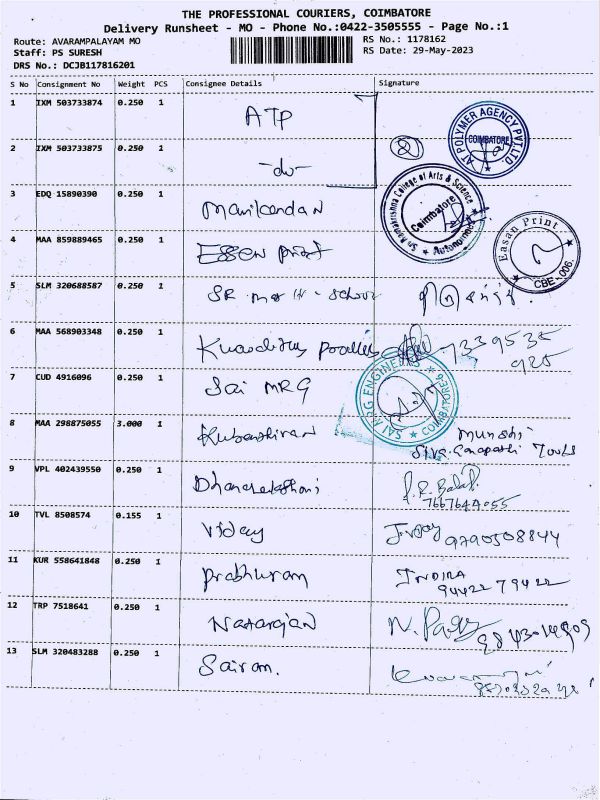 THE PROFESSIONAL COURIERS, COIMBATORE
Delivery Runsheet - MO - Phone No.:0422-3505555 - Page No.:1
Route: AVARAMPALAYAM MO
RS No.: 1178162
Staff: PS SURESH
RS Date: 29-May-2023
DRS No.: DCJB117816201
S No Consignment No Weight PCS Consignee Details Signature
1 IXM 503733874 0.250 1 ATP
AT POLYMER AGENCY PVT LTD
COIMBATORE
2 IXM 503733875 0.250 1 -do-
3 EDQ 15890390 0.250 1 Manikandan
Sri Ramakrishna College of Arts & Science
Coimbatore
Autonomous
4 MAA 859889465 0.250 1 Essen print
Easan Print
CBE-006.
5 SLM 320688587 0.250 1 SR mat Hr - School
6 MAA 568903348 0.250 1 7339535
925
7 CUD 4916096 0.250 1 Sai MRG
SAI MRG ENGINEERS
COIMBATORE-6
8 MAA 298875055 3.000 1 Munshi
Siva Ganapathi Tools
9 VPL 402439550 0.250 1
7667644055
10 TVL 8508574 0.155 1 Vijay 9790508844
11 KUR 558641848 0.250 1 Prabhuram INDIRA
94422 79422
12 TRP 7518641 0.250 1 Natarajan
13 SLM 320483288 0.250 1 Sairam.